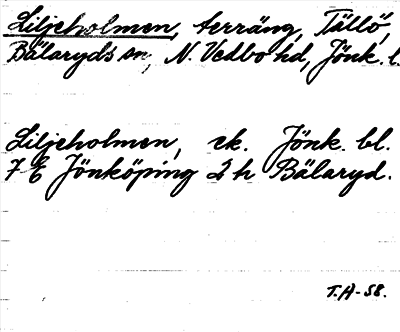 Liljeholmen, terräng, Tällö,
Bälaryds sn, N. Vedbo hd, Jönk. l.
Liljeholmen, ek. Jönk. bl.
7 E Jönköping 2 h Bälaryd.
T.H-58.